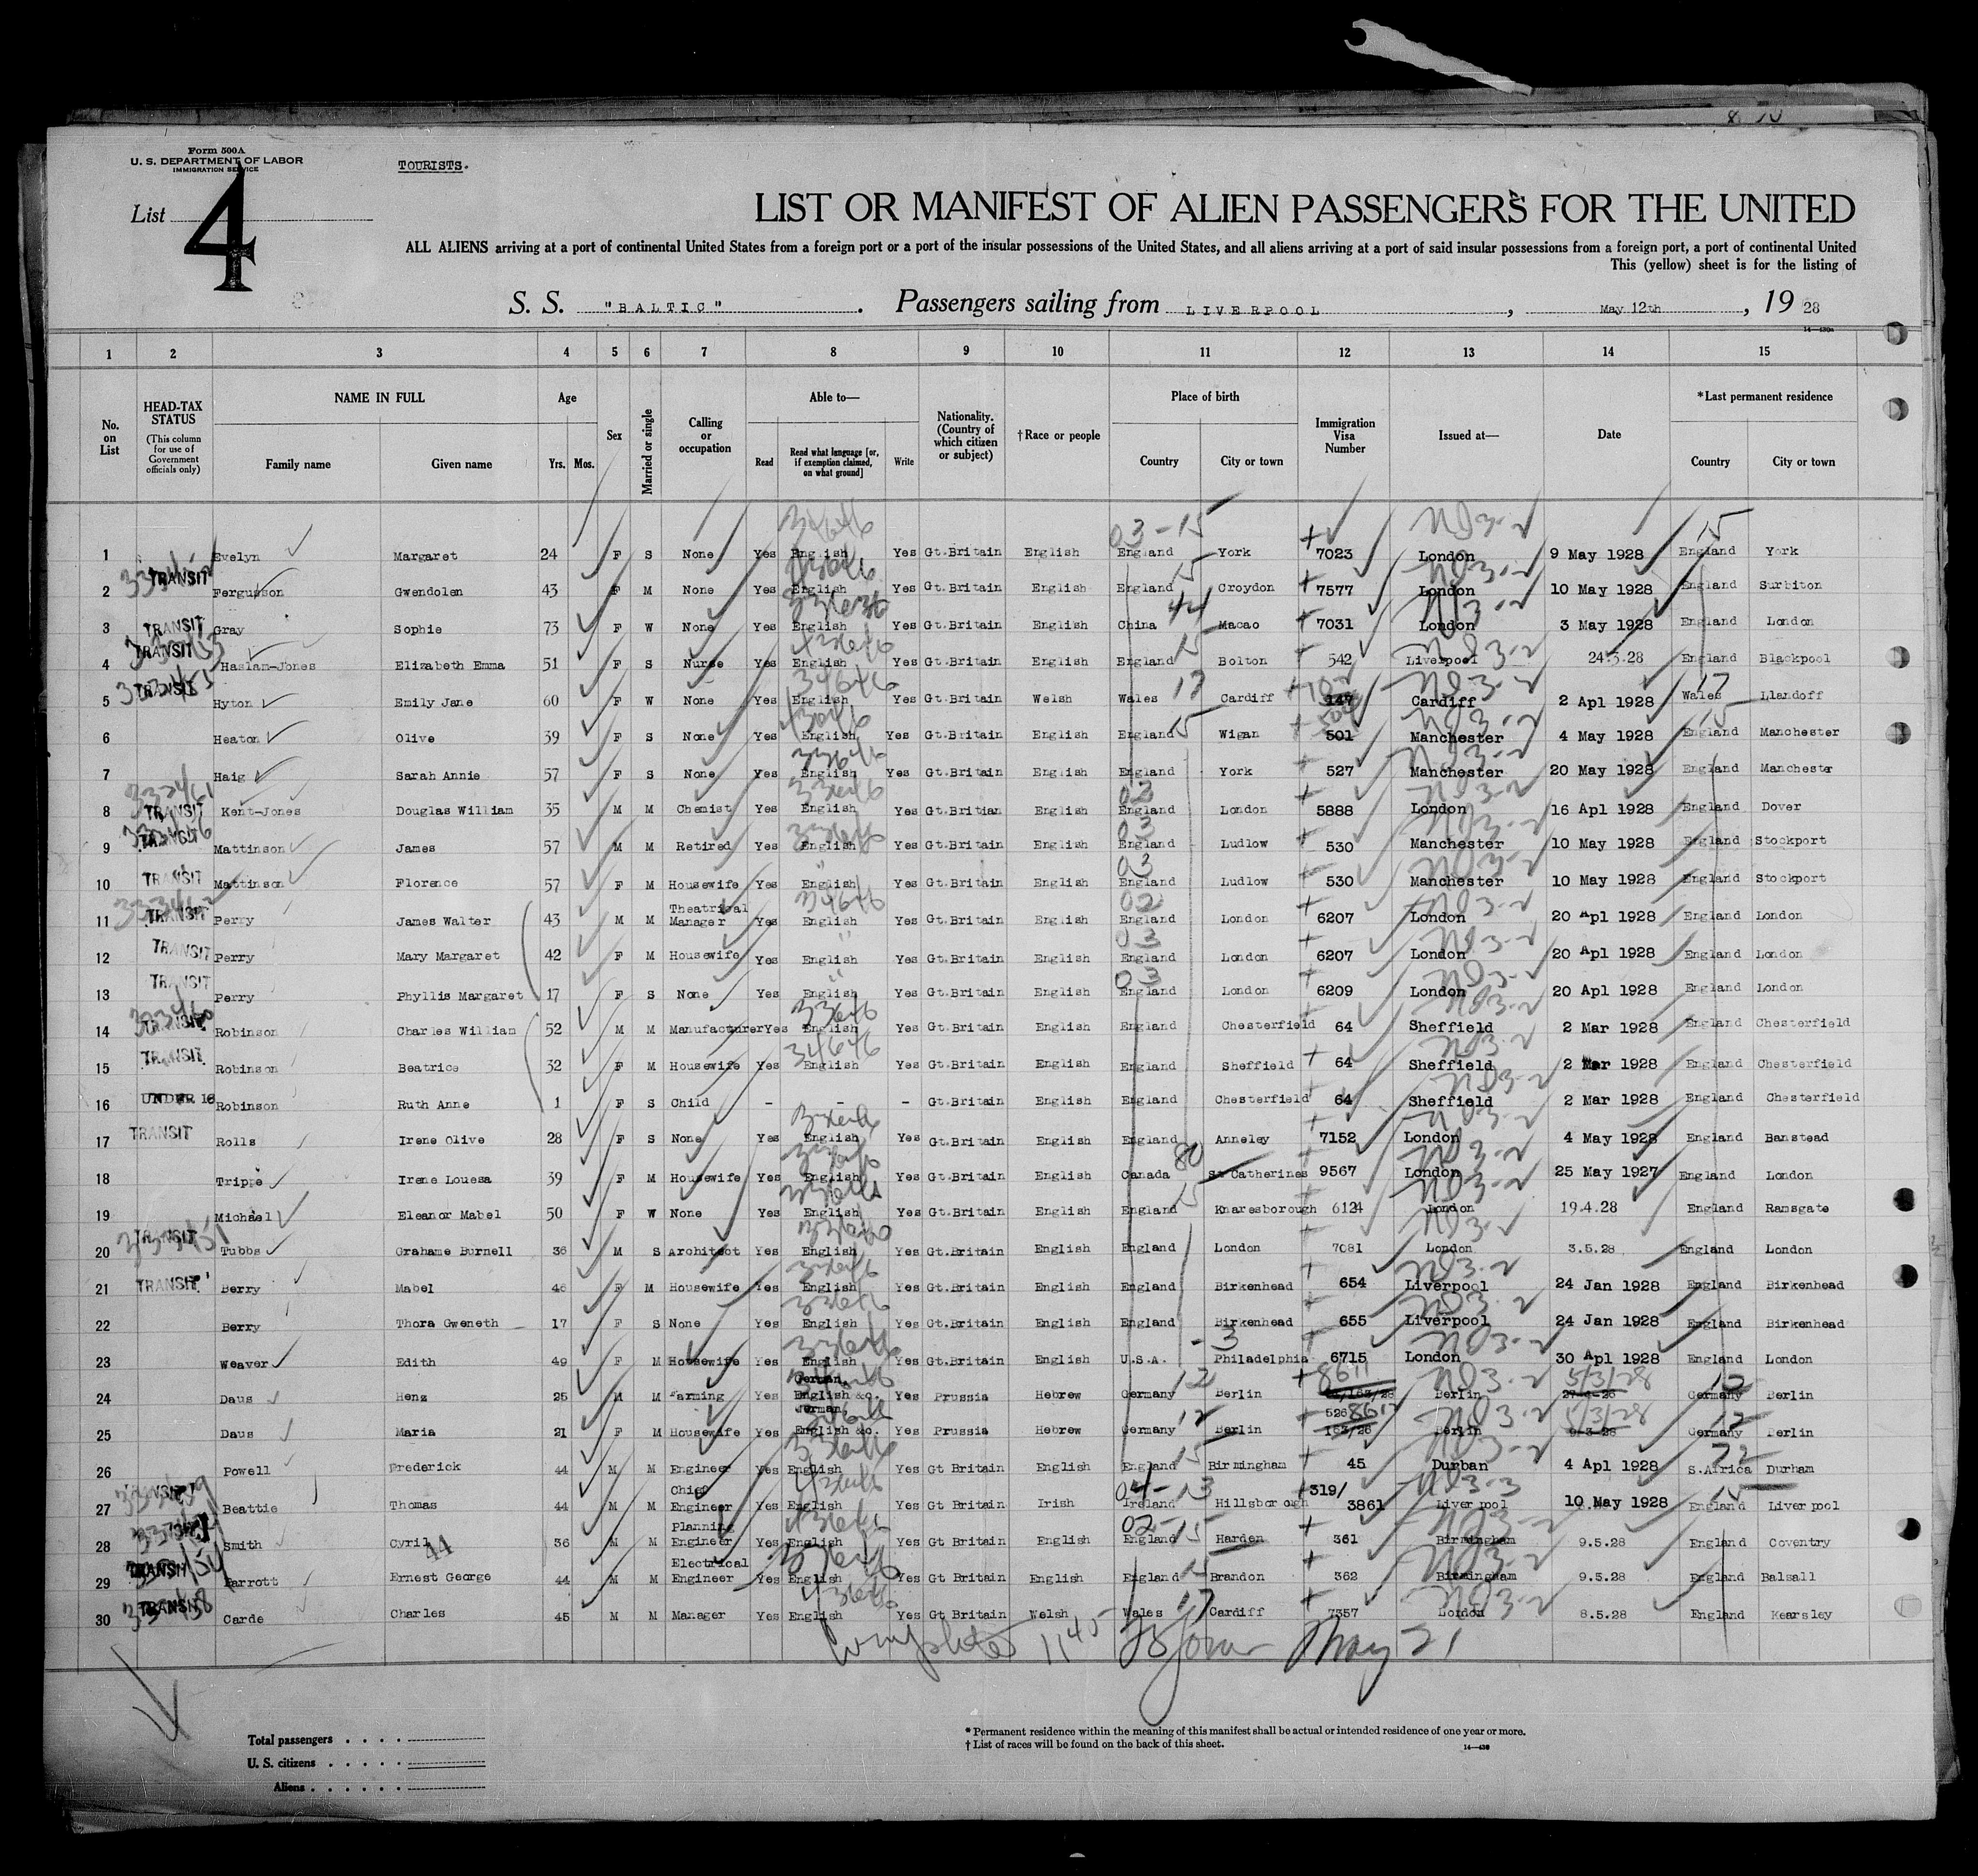 Form 500A
U. S. DEPARTMENT OF LABOR
IMMIGRATION SERVICE
TOURISTS.
List 4
LIST OR MANIFEST OF ALIEN PASSENGERS FOR THE UNITED
ALL ALIENS arriving at a port of continental United States from a foreign port or a port of the insular possessions of the United States, and all aliens arriving at a port of said insular possessions from a foreign port, a port of continental United
This (yellow) sheet is for the listing of
S. S. "BALTIC". Passengers sailing from LIVERPOOL, May 12th, 19 28
1 2 3 4 5 6 7 8 9 10 11 12 13 14 15
No. on List HEAD-TAX STATUS (This column for use of Government officials only) NAME IN FULL Family name Given name Age Yrs. Mos. Sex Married or single Calling or occupation Able to— Read Read what language [or, if exemption claimed, on what ground] Write Nationality. (Country of which citizen or subject) †Race or people Place of birth Country City or town Immigration Visa Number Issued at— Date *Last permanent residence Country City or town
1 Evelyn Margaret 24 F S None Yes English Yes Gt.Britain English England York 7023 London 9 May 1928 England York
2 TRANSIT Fergusson Gwendolen 43 F M None Yes English Yes Gt.Britain English England Croydon 7577 London 10 May 1928 England Surbiton
3 TRANSIT Gray Sophie 73 F W None Yes English Yes Gt.Britain English China Macao 7031 London 3 May 1928 England London
4 TRANSIT Haslam-Jones Elizabeth Emma 51 F S Nurse Yes English Yes Gt.Britain English England Bolton 542 Liverpool 24.3.28 England Blackpool
5 TRANSIT Hyton Emily Jane 60 F W None Yes English Yes Gt.Britain Welsh Wales Cardiff 147 Cardiff 2 Apl 1928 Wales Llandoff
6 Heaton Olive 39 F S None Yes English Yes Gt.Britain English England Wigan 501 Manchester 4 May 1928 England Manchester
7 Haig Sarah Annie 57 F S None Yes English Yes Gt.Britain English England York 527 Manchester 20 May 1928 England Manchester
8 TRANSIT Kent-Jones Douglas William 35 M M Chemist Yes English Yes Gt.Britian English England London 5888 London 16 Apl 1928 England Dover
9 TRANSIT Mattinson James 57 M M Retired Yes English Yes Gt.Britain English England Ludlow 530 Manchester 10 May 1928 England Stockport
10 TRANSIT Mattinson Florence 57 F M Housewife Yes English Yes Gt.Britain English England Ludlow 530 Manchester 10 May 1928 England Stockport
11 TRANSIT Perry James Walter 43 M M Theatrical Manager Yes English Yes Gt.Britain English England London 6207 London 20 Apl 1928 England London
12 TRANSIT Perry Mary Margaret 42 F M Housewife Yes English Yes Gt.Britain English England London 6207 London 20 Apl 1928 England London
13 TRANSIT Perry Phyllis Margaret 17 F S None Yes English Yes Gt.Britain English England London 6209 London 20 Apl 1928 England London
14 TRANSIT Robinson Charles William 52 M M Manufacturer Yes English Yes Gt.Britain English England Chesterfield 64 Sheffield 2 Mar 1928 England Chesterfield
15 TRANSIT Robinson Beatrice 32 F M Housewife Yes English Yes Gt.Britain English England Sheffield 64 Sheffield 2 Mar 1928 England Chesterfield
16 UNDER 16 Robinson Ruth Anne 1 F S Child - - - Gt.Britain English England Chesterfield 64 Sheffield 2 Mar 1928 England Chesterfield
17 TRANSIT Rolls Irene Olive 28 F S None Yes English Yes Gt.Britain English England Anneley 7152 London 4 May 1928 England Banstead
18 Trippe Irene Louesa 39 F M Housewife Yes English Yes Gt.Britain English Canada St Catherines 9567 London 25 May 1927 England London
19 Michael Eleanor Mabel 50 F W None Yes English Yes Gt.Britain English England Knaresborough 6124 London 19.4.28 England Ramsgate
20 TRANSIT Tubbs Grahame Burnell 36 M S Architect Yes English Yes Gt.Britain English England London 7081 London 3.5.28 England London
21 TRANSIT Berry Mabel 46 F M Housewife Yes English Yes Gt.Britain English England Birkenhead 654 Liverpool 24 Jan 1928 England Birkenhead
22 Berry Thora Gweneth 17 F S None Yes English Yes Gt.Britain English England Birkenhead 655 Liverpool 24 Jan 1928 England Birkenhead
23 Weaver Edith 49 F M Housewife Yes English Yes Gt.Britain English U.S.A. Philadelphia 6715 London 30 Apl 1928 England London
24 Daus Henz 25 M M Farming Yes German, English &c. Yes Prussia Hebrew Germany Berlin 8611 Berlin 5/3/28 Germany Berlin
25 Daus Maria 21 F M Housewife Yes German, English &c. Yes Prussia Hebrew Germany Berlin 8612 Berlin 5/3/28 Germany Berlin
26 Powell Frederick 44 M M Engineer Yes English Yes Gt Britain English England Birmingham 45 Durban 4 Apl 1928 S.Africa Durham
27 TRANSIT Beattie Thomas 44 M M Chief Engineer Yes English Yes Gt Britain Irish Ireland Hillsborough 319/3861 Liverpool 10 May 1928 England Liverpool
28 Smith Cyril 36 M M Planning Engineer Yes English Yes Gt Britain English England Harden 361 Birmingham 9.5.28 England Coventry
29 TRANSIT Parrott Ernest George 44 M M Electrical Engineer Yes English Yes Gt Britain English England Brandon 362 Birmingham 9.5.28 England Balsall
30 TRANSIT Carde Charles 45 M M Manager Yes English Yes Gt Britain Welsh Wales Cardiff 7357 London 8.5.28 England Kearsley
11 45 May 21
Total passengers
U. S. citizens
Aliens
* Permanent residence within the meaning of this manifest shall be actual or intended residence of one year or more.
† List of races will be found on the back of this sheet.